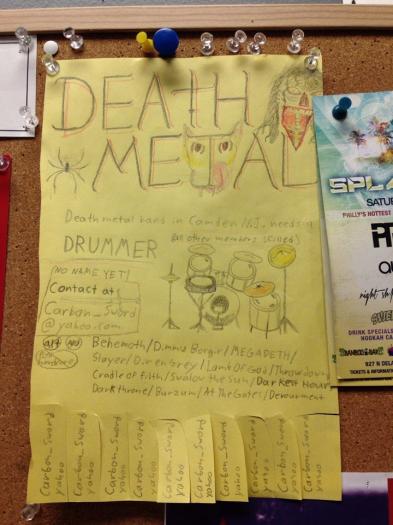 DEATH
METAL
Death metal band in Camden NJ. needs a
DRUMMER (all other members filled)
NO NAME YET!
Contact at:
Carbon_Sword
@yahoo.com
Behemoth/Dimmu Borgir/MEGADETH/
Slayer/Dir en Grey/Lamb Of God/Throwdown
Cradle of filth/Swalow the Sun/Darkest Hour
Darkthrone/Burzum/At The Gates/Devourment
Carbon_Sword
yahoo
Carbon_Sword
yahoo
Carbon_Sword
yahoo
Carbon_Sword
yahoo
Carbon_Sword
yahoo
Carbon_Sword
yahoo
Carbon_Sword
yahoo
Carbon_Sword
yahoo
Carbon_Sword
yahoo
SPL
SATU
PHILLY'S HOTTEST
QU
right
DRINK SPECIALS
HOOKAH
927 N DEL
TICKETS & INFORMAT